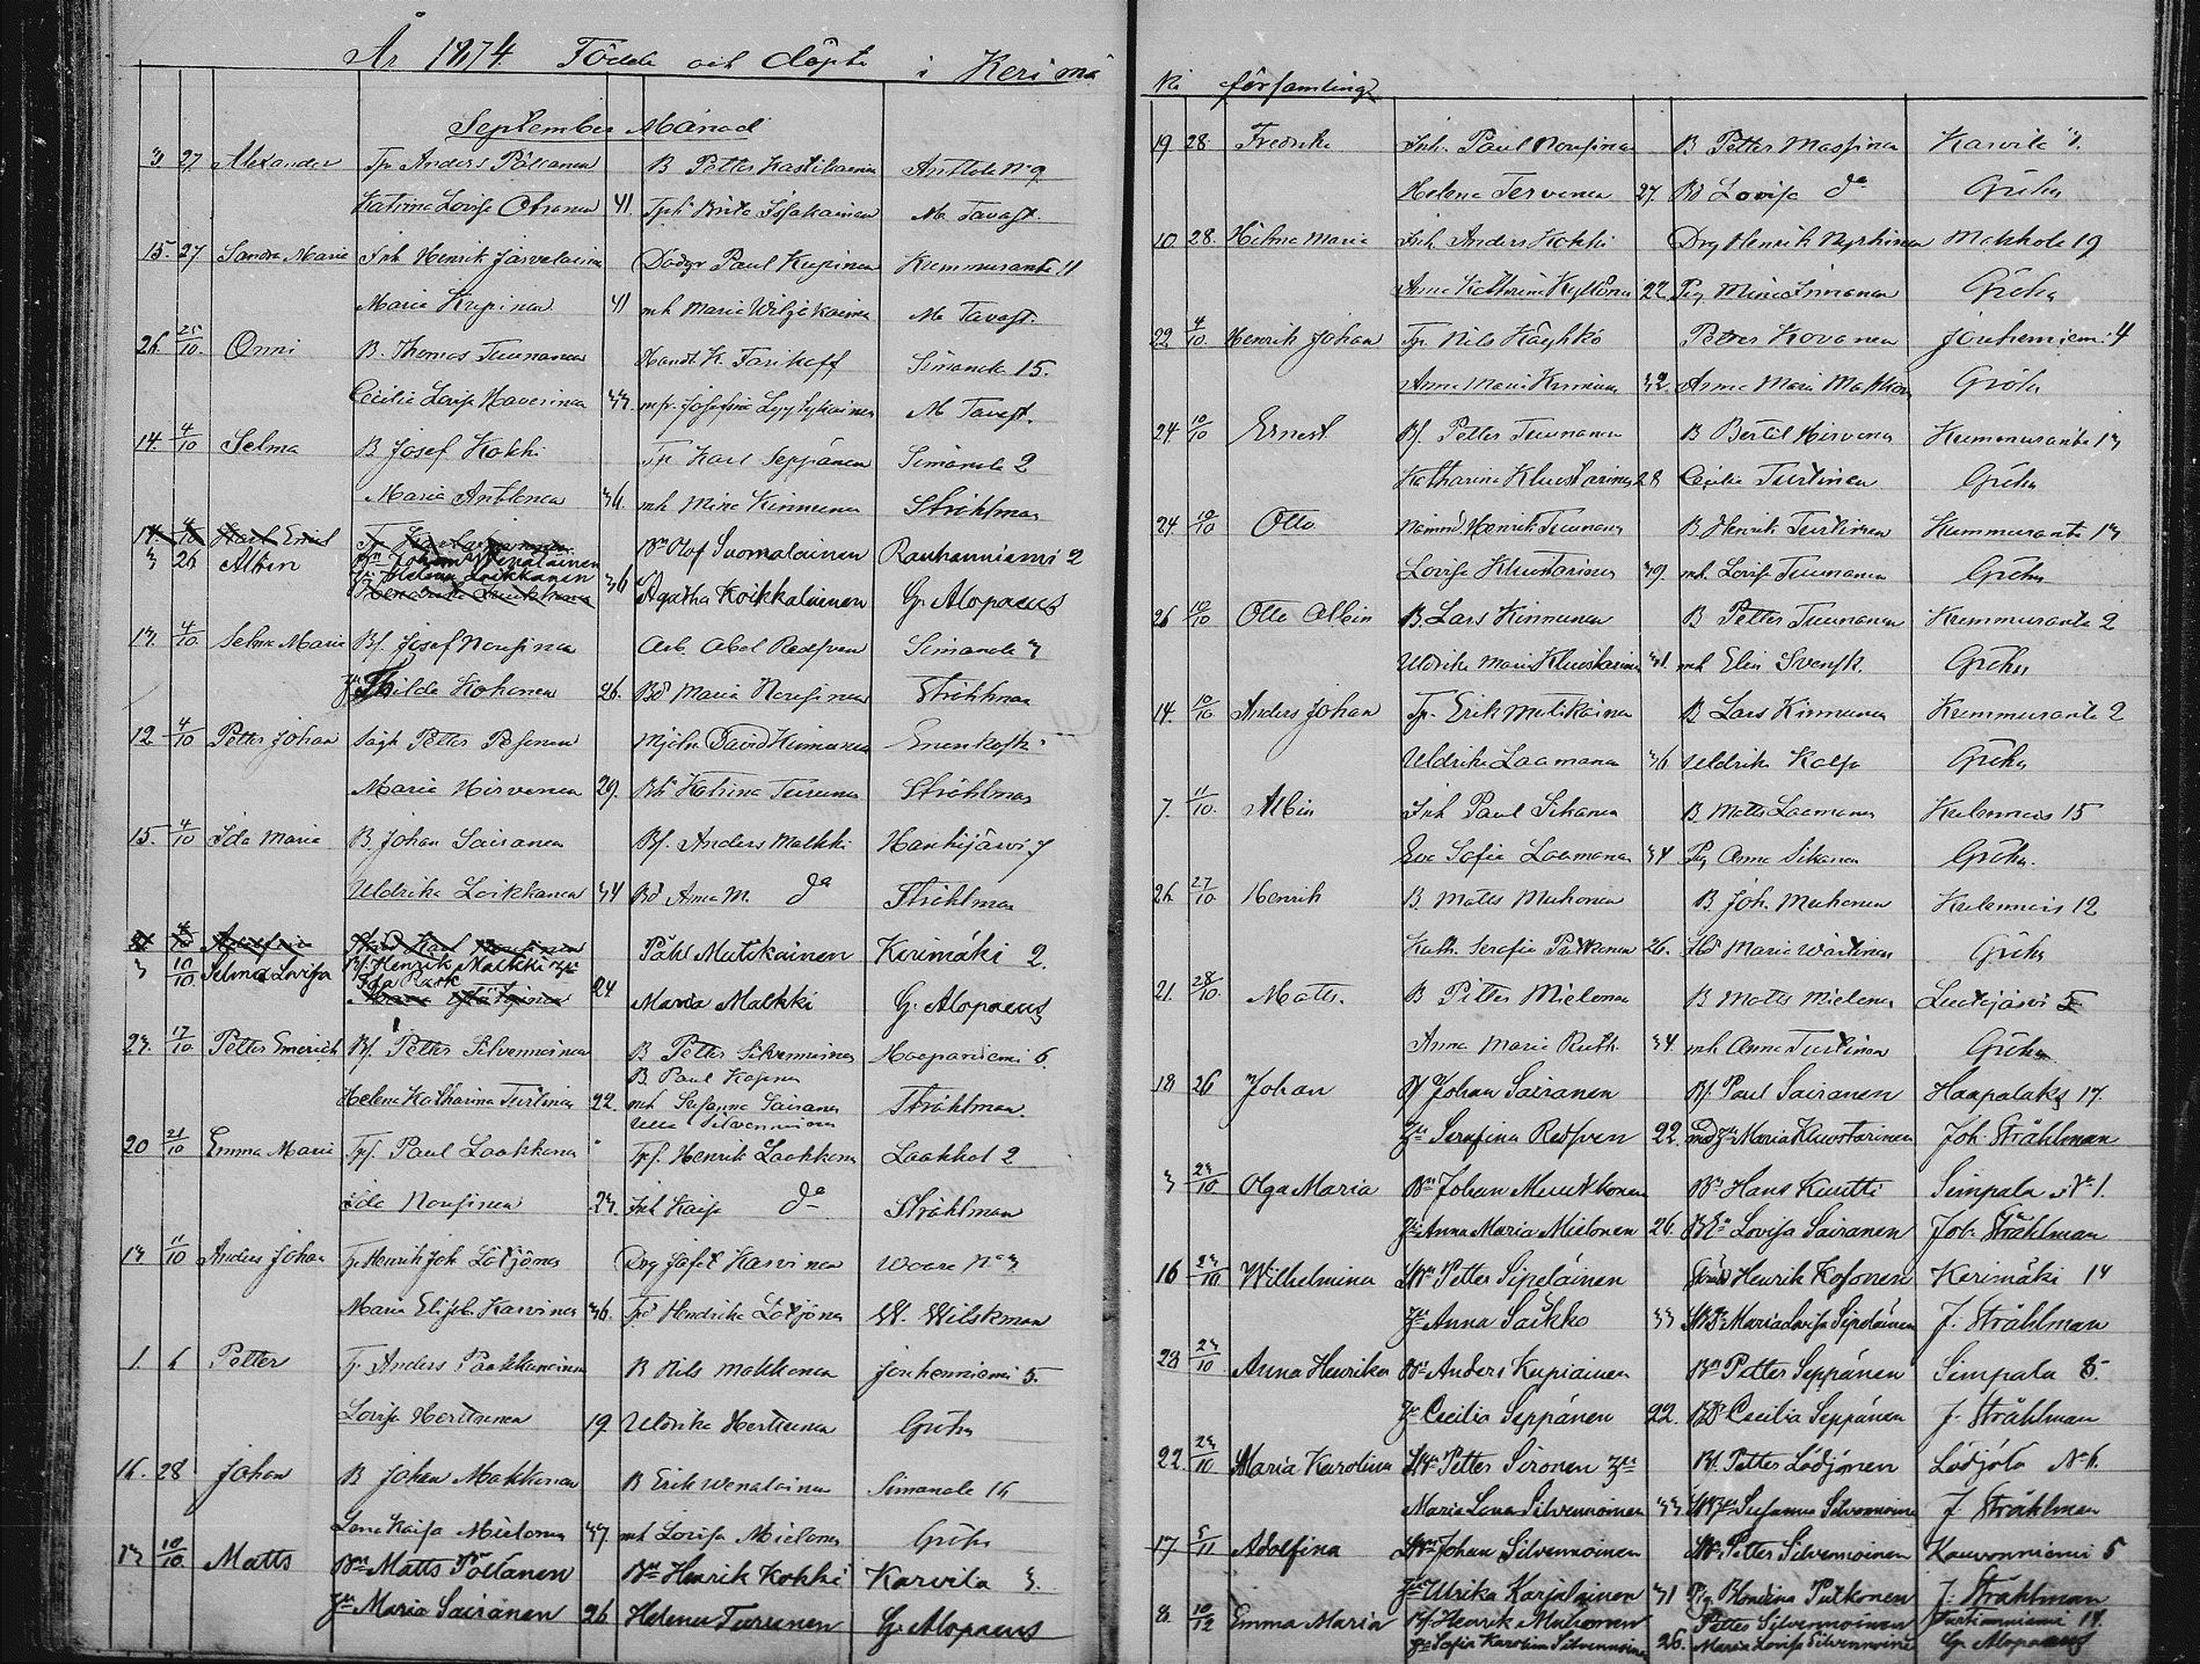 År 1874 Födde och döpte i Kerimä
September Månad
3 27 Alexander Tp. Anders Pöllänen B Petter Kastikainen Anttola No 9
Katrina Lovisa 41 Brita M. Tavast.
15. 27 Sandra Maria Inh Henrik Järveläinen Paul Kupinen Kummuranta 11
Maria Kupinen 41 mh Maria M. Tavast.
26. 25/10. Onni B. Thomas Tuunanen Handl. K. Simanala 15.
Cecilia Lovisa Haverinen 33. Josefina Lyytykäinen M Tavast.
14. 4/10 Selma B Josef Kokki Tp Karl Seppänen Simanala 2
Maria Anttonen 36. mh Mina Kinnunen Stråhlman
3 26 Albin Bn Johan Wenäläinen Bn Olof Suomalainen Rauhanniemi 2
Hu Helena Loikkanen 36 Agatha Koikkalainen G. Alopaeus
13. 4/10. Selma Maria Bf. Josef Nousinen Arb. Abel Redsven Simanala 3
Hilda Kohonen 26. Bd Maria Nousinen Stråhlman
12 4/10 Petter Johan Petter Pesonen David Kinnunen
Maria Hirvonen 29. Bh Katrina Turunen Stråhlman
15. 4/10 Ida Maria B Johan Sairanen Bf. Anders Malkki Hanhijärvi 7
Uldrika Loikkanen 34 Bd Anna M. do Stråhlman
3 10/10 Selma Lovisa Bf. Henrik Malkki Påhl Mutikainen Kerimäki 2.
Ida Rask 24 Maria Malkki G. Alopaeus
23. 17/10. Petter Emerich Bf. Petter Silvennoinen B Petter Silvennoinen Haapaniemi 6.
B Paul
Helena Katharina Turtinen 22. mh Susanna Sairanen Stråhlman.
Ulla Silvennoinen
20 21/10 Emma Maria Tpf. Paul Laakkonen Tpf. Henrik Laakkonen Laakkol 2
Ida Nousinen 23. Inh Kaisa do Stråhlman
13. 11/10 Anders Johan Tp. Henrik Joh. Lötjönen Drg Jafet Karvinen Woara No 3
Maria Elisab. Karvinen 36. Hendrika Lötjönen W. Wilskman
1. 6 Petter Tp. Anders Paakkunainen B Nils Makkonen Jouhenniemi 5.
Lovisa Herttuinen 19. Uldrika Herttuinen Gröhn
16. 28 Johan B Johan Makkonen B Erik Wenäläinen Simanala 16
Lena Kaisa Mielonen 37. mh Lovisa Mielonen Gröhn
13 10/10 Matts Bn Matts Pöllänen Bn Henrik Kokki Karvila 3.
Hu Maria Sairanen 26 Helena Turunen G. Alopaeus
ki församling
19. 28. Fredrika Inh. Paul Nousinen B Petter Massinen Karvila
Helena Tervonen 27. Bd Lovisa do Gröhn
10. 28. Hilma Maria Inh Anders Kokki Drg Henrik Makkola 19
Anna Katharina Kyllönen 22. Pig. Mina Immonen Gröhn
22. 4/10. Henrik Johan Tp. Nils Käyhkö Petter Kovanen Jouhenniemi 4
Anna Maria Kinnunen 32. Anna Maria Makkonen Gröhn
24 10/10 Ernest Bf. Petter Tuunanen B Bertil Hirvonen Kummuranta 13
Katharina Kluustarinen 28 Cecilia Turtinen Gröhn
24. 10/10 Otto Nämnd Henrik Tuunanen B Henrik Turtinen Kummuranta 13
Lovisa Kluustarinen 39. mh. Lovisa Tuunanen Gröhn
26 10/10 Otto Albin B. Lars Kinnunen B Petter Tuunanen Kummuranta 2
Uldrika Maria Kluustarinen 31. mh Elin Svensk. Gröhn
14. 10/10 Anders Johan Tp. Erik Mutikainen B Lars Kinnunen Kummuranta 2
Uldrika Laamanen 36 Uldrika Gröhn
7. 11/10. Albin Inh Paul Sihonen B Matts Laamanen Kulennois 15
Eva Sofia Laamanen 34 Pig Anna Sikanen Gröhn.
26. 27/10. Henrik B. Matts Muhonen B Joh. Muhonen Kulennois 12
Kath. Serafia Pulkkonen 26. Maria Gröhn
21. 28/10. Matts. B Petter Mielonen B Matts Mielonen 5
Anna Maria Ruth 34. mh Anna Turtinen Gröhn
18 26 Johan Bf Johan Sairanen Bf. Paul Sairanen Haapalaks 17.
Hu Serafina Redsven 22. Maria Kluustarinen Joh. Stråhlman
3 23/10 Olga Maria Bn Johan Muukkonen Bn Hans Kuutti Simpala No 1.
Hu Anna Maria Mielonen 26. Lovisa Sairanen Joh. Stråhlman
16 23/10 Wilhelmina Petter Sipeläinen Henrik Kosonen Kerimäki 14
Hu Anna Saikko 33 Maria Lovisa Sipeläinen J. Stråhlman
28 23/10 Anna Henrika Bn Anders Kupiainen Bn Petter Seppänen Simpala 8.
Hu Cecilia Seppänen 22. Cecilia Seppänen J. Stråhlman
22. 23/10. Maria Karolina Petter Sironen Hu Bf. Petter Lödjönen Lödjölä No 6.
Maria Lena Silvennoinen 33 Susanna Silvennoinen J. Stråhlman
17 5/11 Adolfina Johan Silvennoinen Petter Silvennoinen Kauvonniemi 5
Hu Ulrika Karjalainen 31 Pig. Blondina Pulkonen J. Stråhlman
8. 10/12 Emma Maria Bf. Henrik Muhonen Petter Silvennoinen 14.
Hu Sofia Karolina Silvennoinen 26. Maria Lovisa Silvennoinen G. Alopaeus